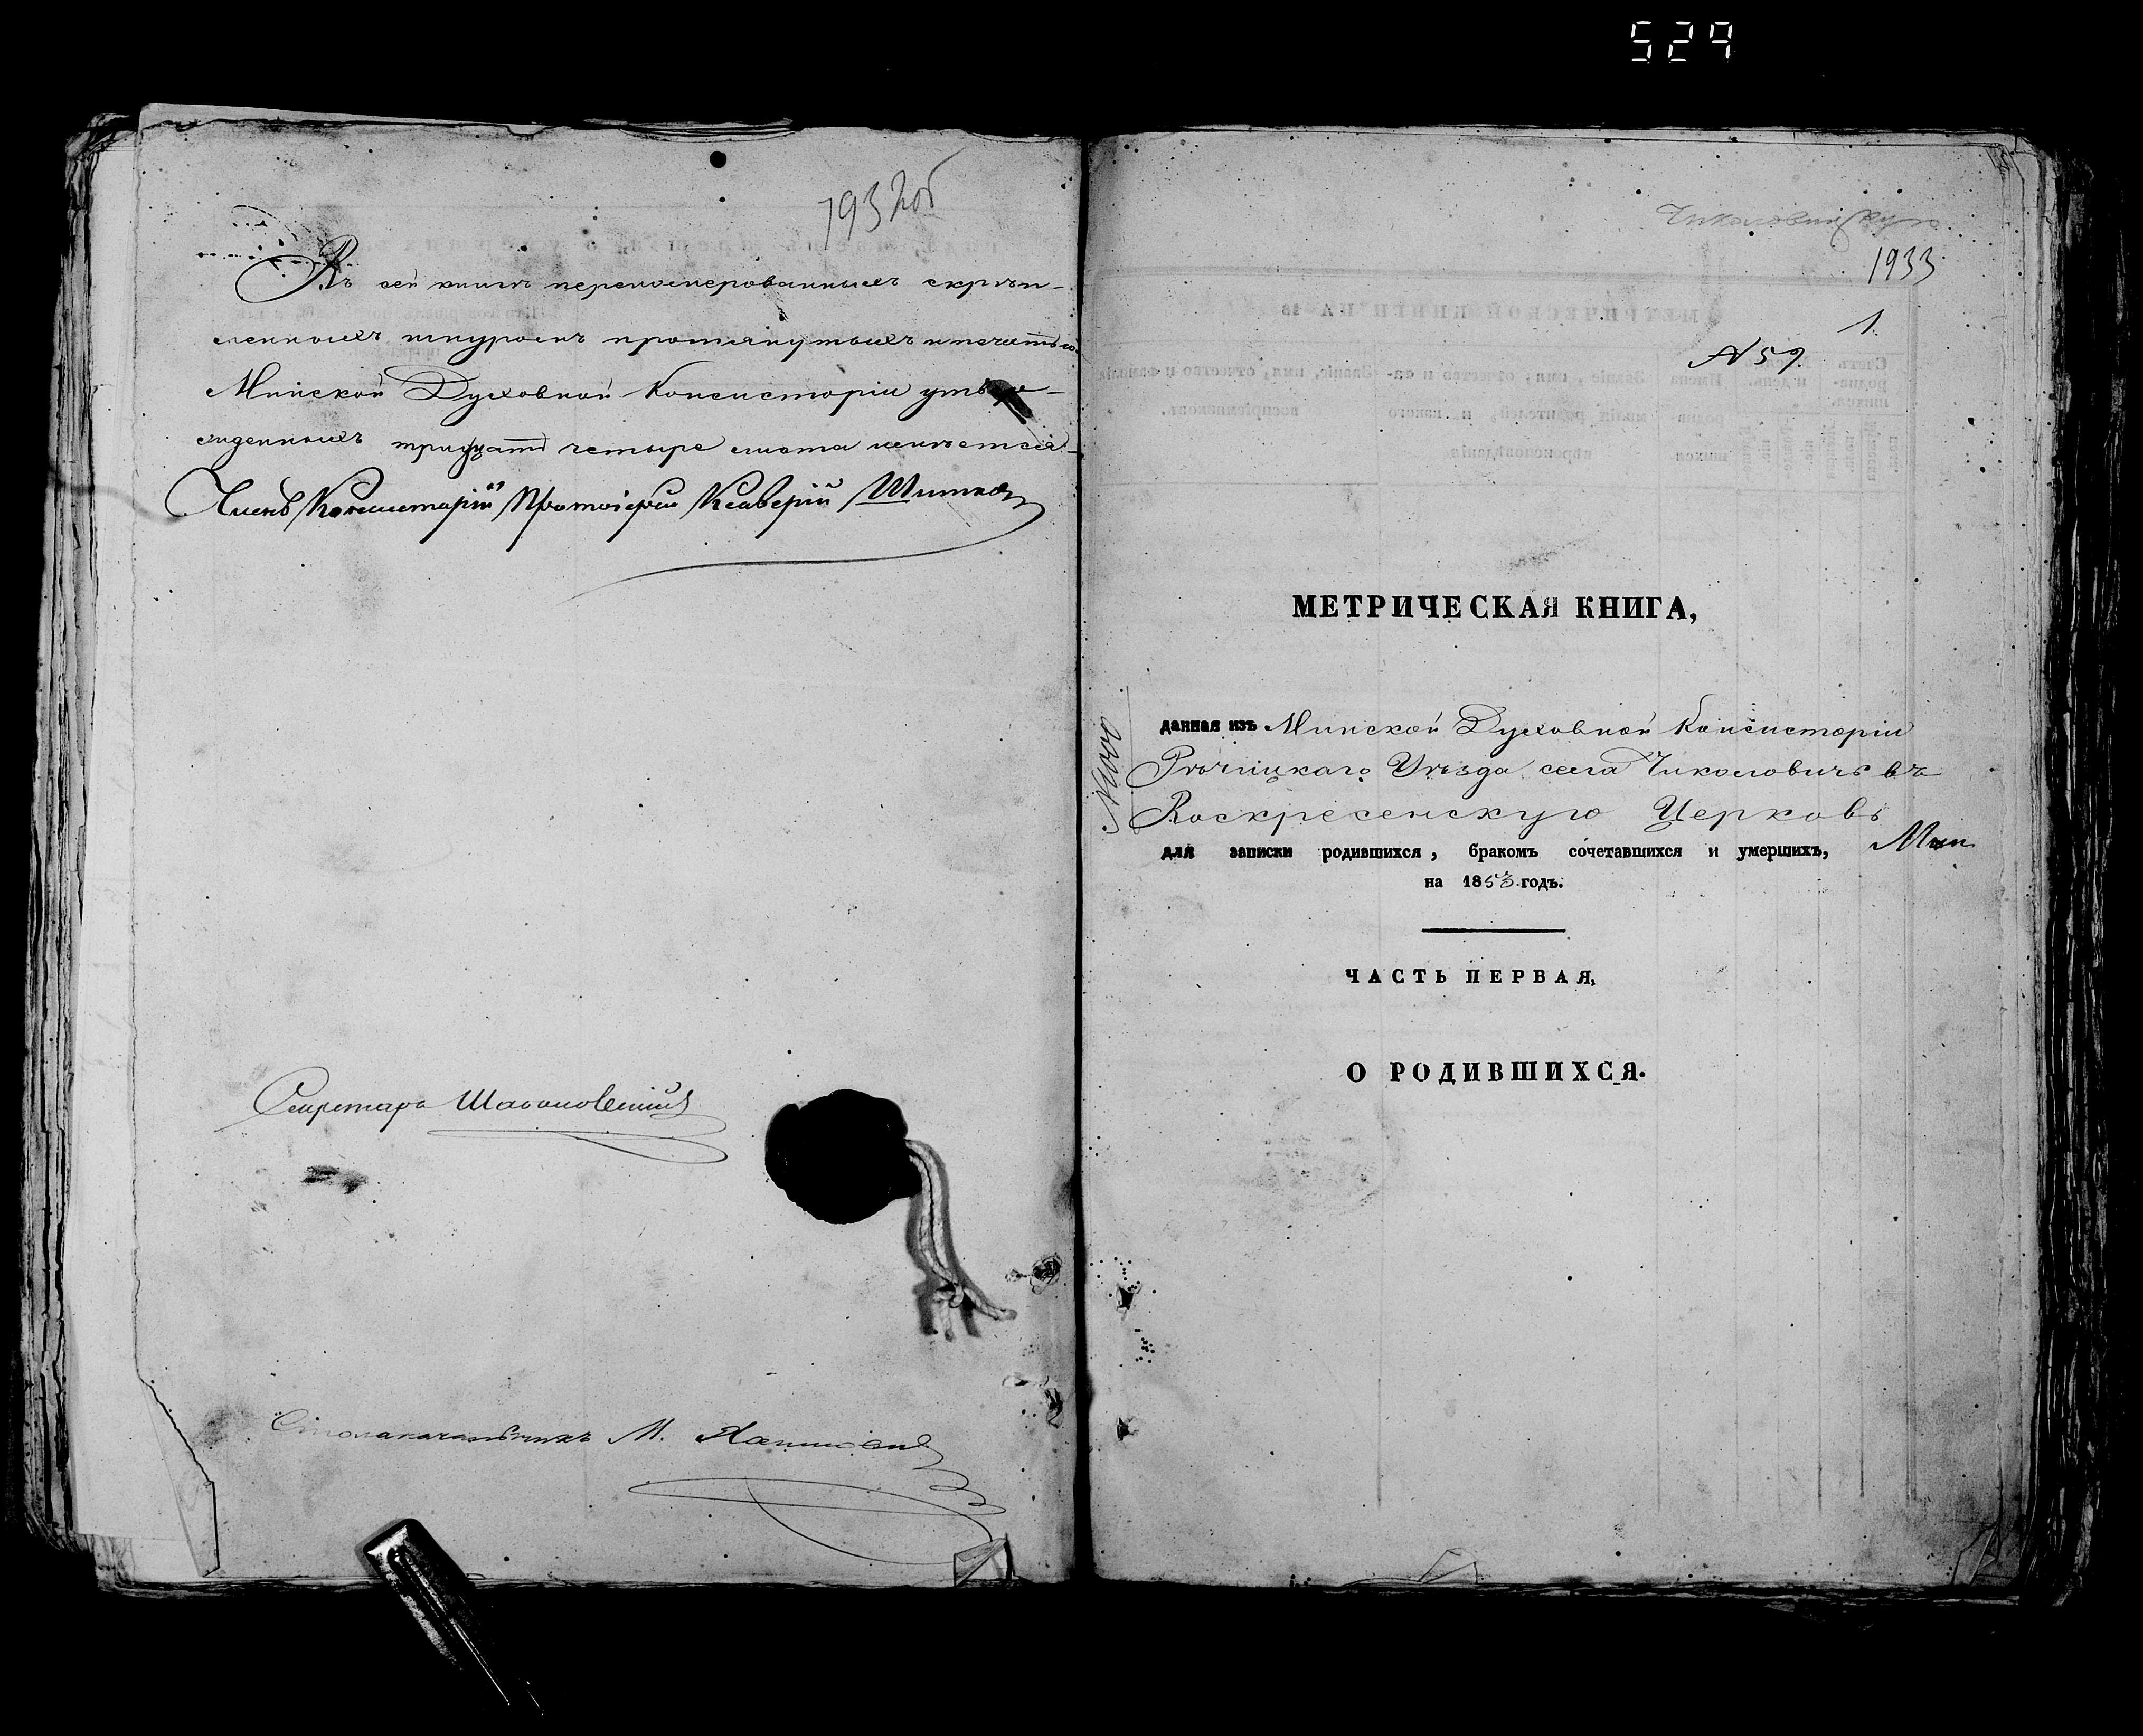 529
1932об
Въ сей книгѣ перенумерованныхъ скрѣп-
ленныхъ шнуромъ протянутыхъ и печатью
Минской Духовной Консисторіи утвер-
жденныхъ тридцать четыре листа имѣется
Членъ Консисторіи Протоіерей Ксаверій
Секретарь
Столоначальникъ М.
1933
1.
N 59.
МЕТРИЧЕСКАЯ КНИГА,
данная изъ Минской Духовной Консисторіи
Рѣчицкаго Уѣзда села Чиколовичъ въ
Воскресенскую Церковь
для записки родившихся, бракомъ сочетавшихся и умершихъ,
на 1853 годъ.
ЧАСТЬ ПЕРВАЯ,
О РОДИВШИХСЯ.